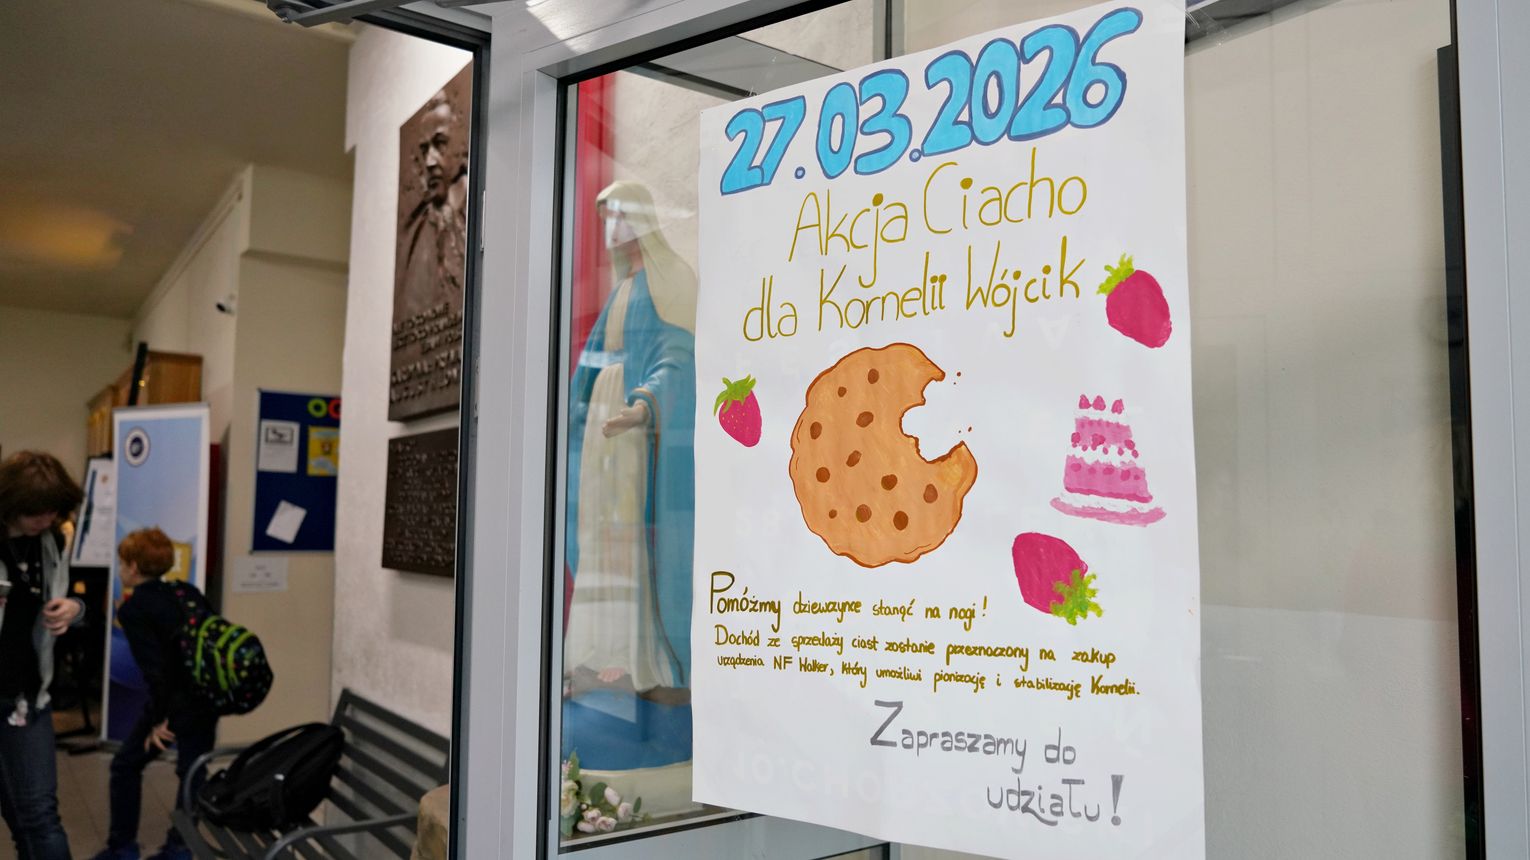 27.03.2026
Akcja Ciacho
dla Kornelii Wójcik
Pomóżmy dziewczynce stanąć na nogi!
Dochód ze sprzedaży ciast zostanie przeznaczony na zakup
urządzenia NF Walker, który umożliwi pionizację i stabilizację Kornelii.
Zapraszamy do
udziału!